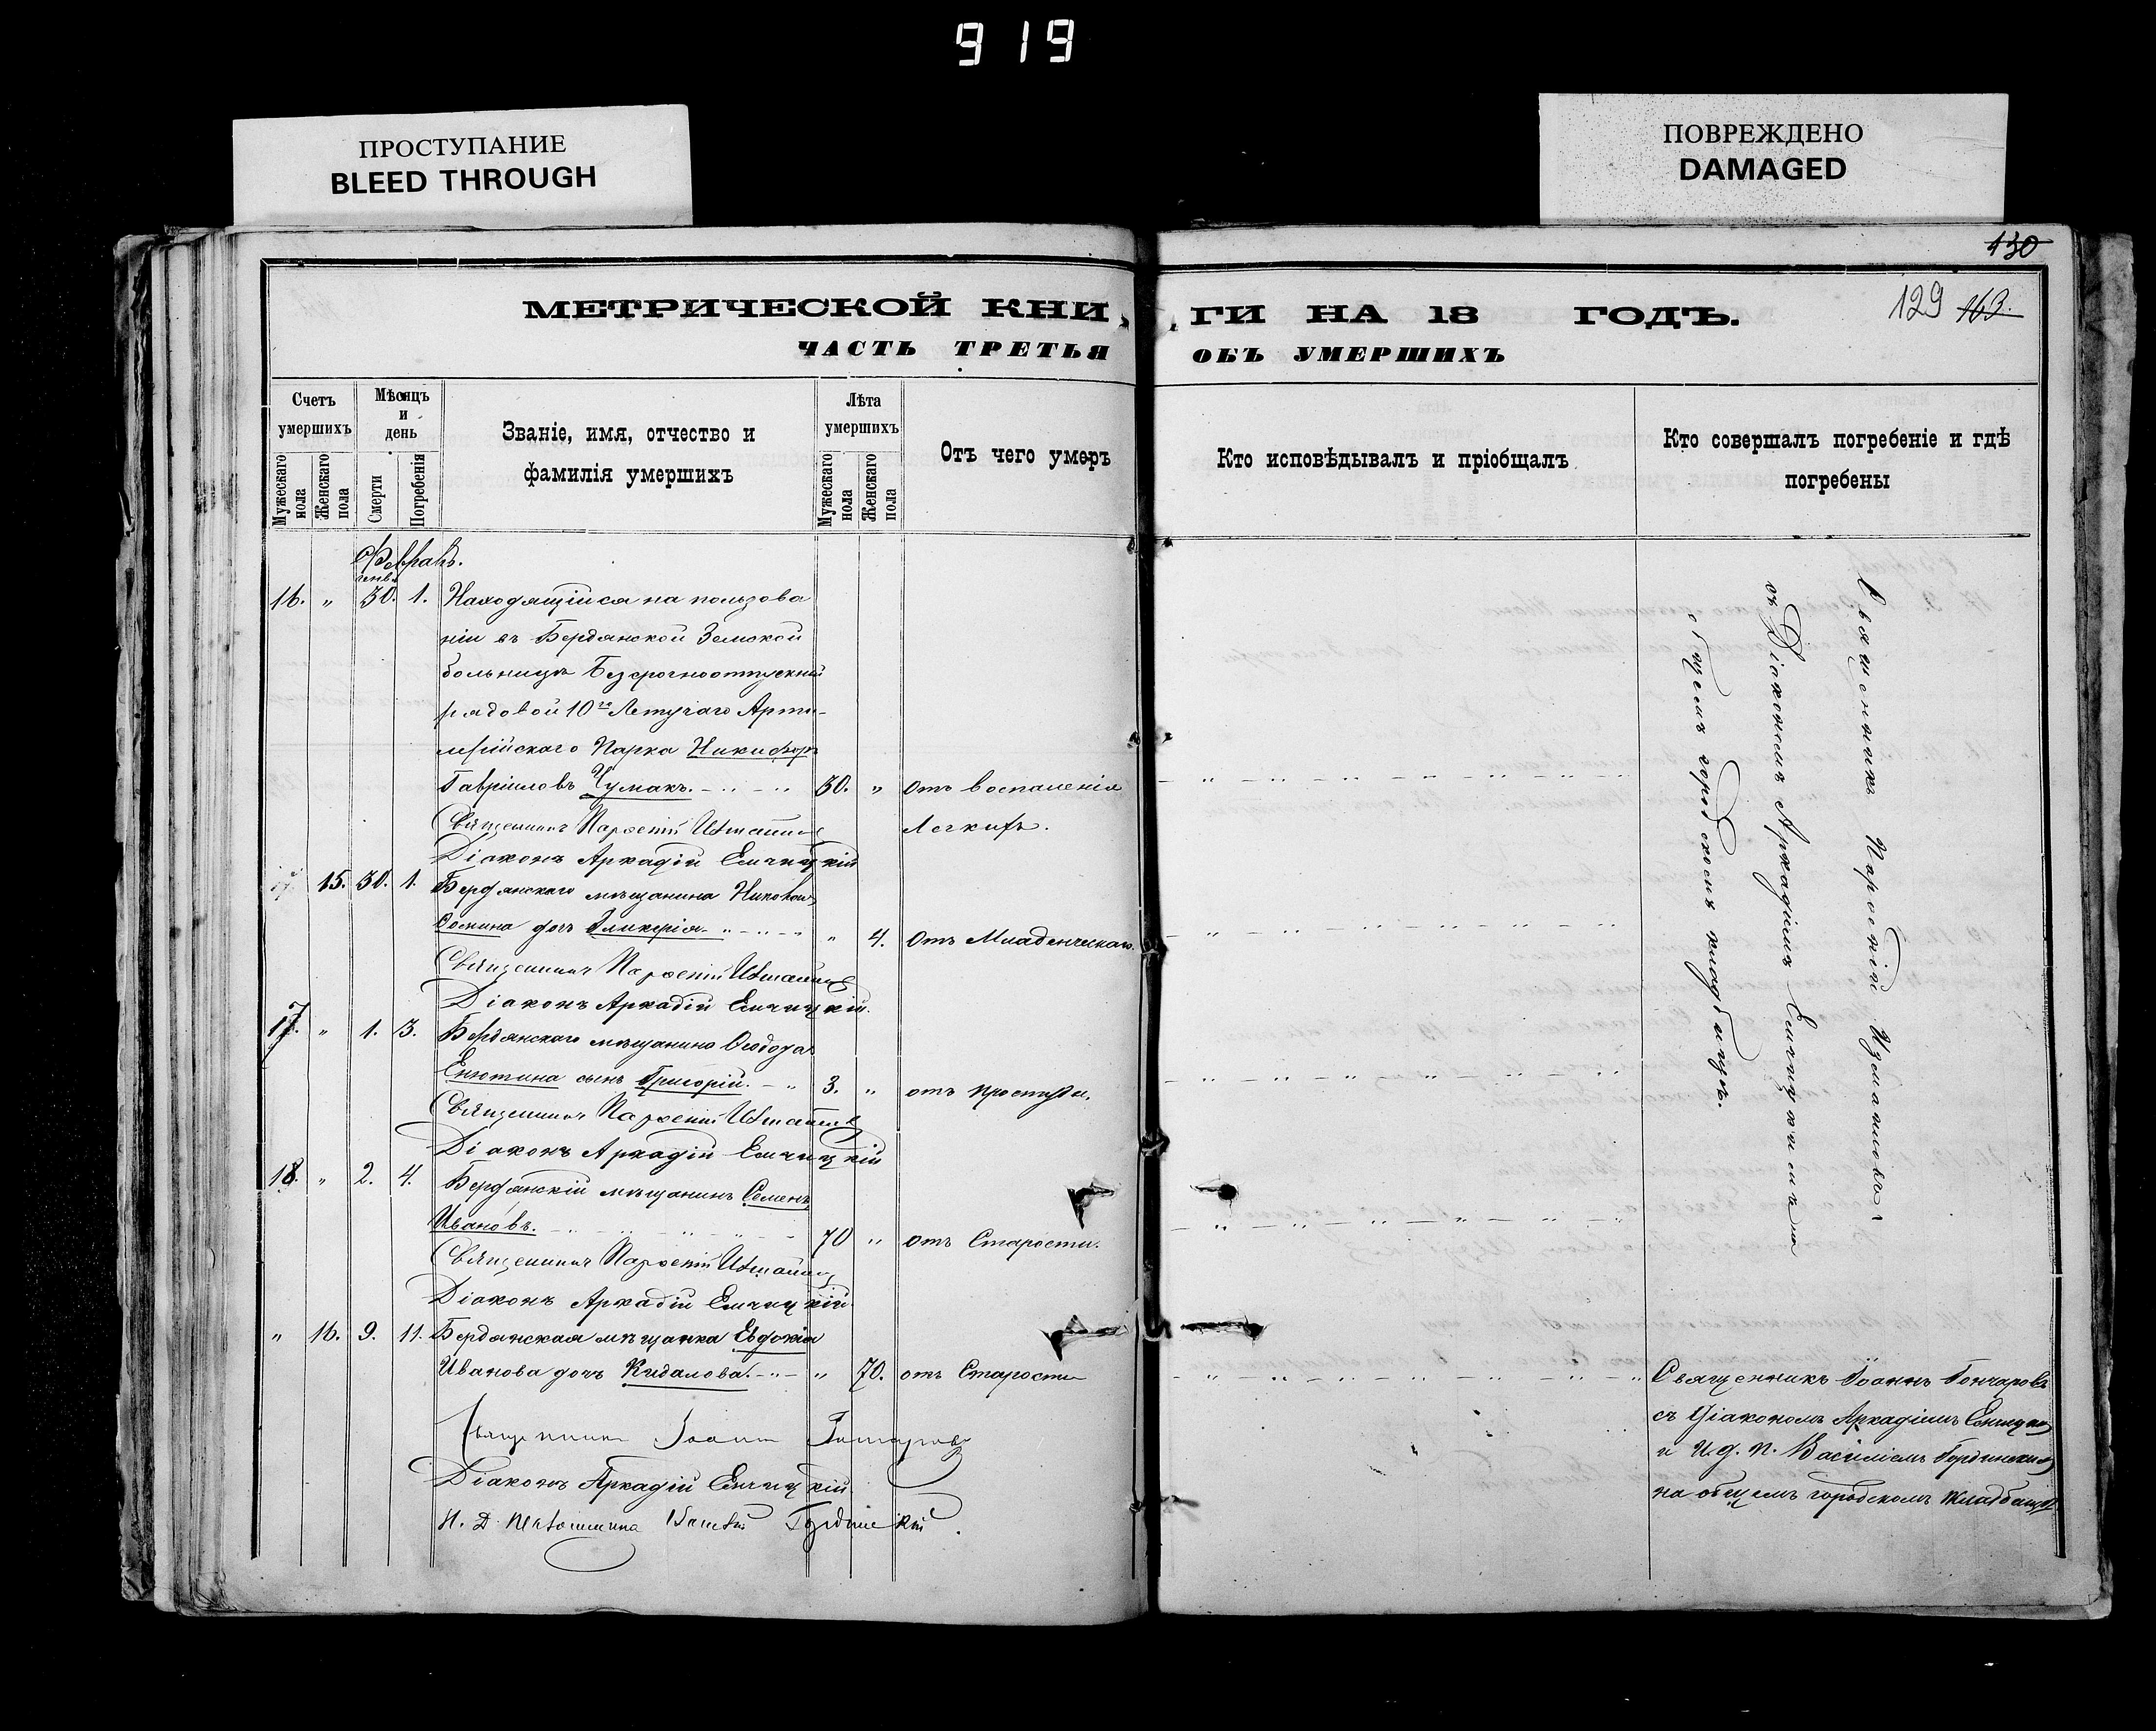 919
ПРОСТУПАНИЕ
BLEED THROUGH
ПОВРЕЖДЕНО
DAMAGED
130
129 163.
МЕТРИЧЕСКОЙ КНИ
ГИ НА 18 ГОДЪ.
ЧАСТЬ ТРЕТЬЯ
ОБЪ УМЕРШИХЪ
Счетъ умершихъ
Мужескаго пола
Женскаго пола
Мѣсяцъ и день
Смерти
Погребенія
Званіе, имя, отчество и
фамилія умершихъ
Лѣта умершихъ
Мужескаго пола
Женскаго пола
Отъ чего умеръ
Кто исповѣдывалъ и пріобщалъ
Кто совершалъ погребеніе и гдѣ
погребены
Февраль.
генв.
16. „ 30. 1. Находящійся на пользова
ніи въ Бердянской Земской
больницѣ Безсрочноотпускный
рядовой 10го Летучаго Арти-
лрійскаго Парка Никифоръ
Гавріиловъ Чумакъ. 30. „ отъ воспаленія
Легкихъ.
Священникъ Парѳеній
Діаконъ Аркадій Емчицкій
15. 30. 1. Бердянскаго мѣщанина
Ѳомина дочь Гликерія „ 4. Отъ Младенческаго.
Священникъ Парѳеній
Діаконъ Аркадій Емчицкій.
17. „ 1. 3. Бердянскаго мѣщанина Ѳеодора
Енютина сынъ Григорій. 3. „ отъ простуды.
Священникъ Парѳеній
Діаконъ Аркадій Емчицкій
18. „ 2. 4. Бердянскій мѣщанинъ Семенъ
Ивановъ. 70 „ отъ Старости.
Священникъ Парѳеній
Діаконъ Аркадій Емчицкій
„ 16. 9. 11. Бердянская мѣщанка Евдокія
Иванова дочь Кидалова. „ 70. отъ Старости
Священникъ Іоаннъ Гончаровъ
Діаконъ Аркадій Емчицкій
И. Д. Псаломщика Василій Гординскій.
Священникъ Парѳеній
съ Діакономъ Аркадіемъ Емчицкимъ на
общемъ городскомъ кладбищѣ.
Священникъ Іоаннъ Гончаровъ
съ Діакономъ Аркадіемъ Емчицким
и И. д. п. Василіемъ Гординским
на общемъ городскомъ кладбищѣ